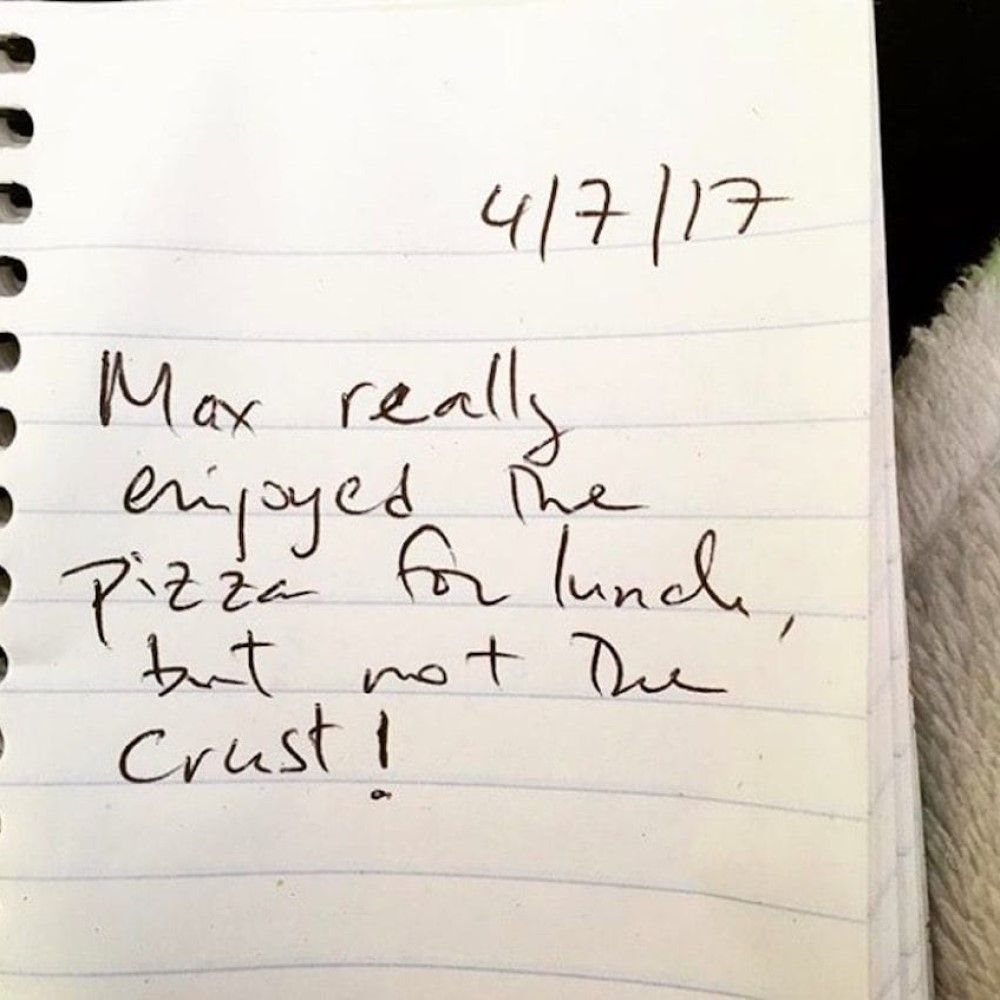 4/7/17
Max really
enjoyed the
pizza for lunch,
but not the
crust!